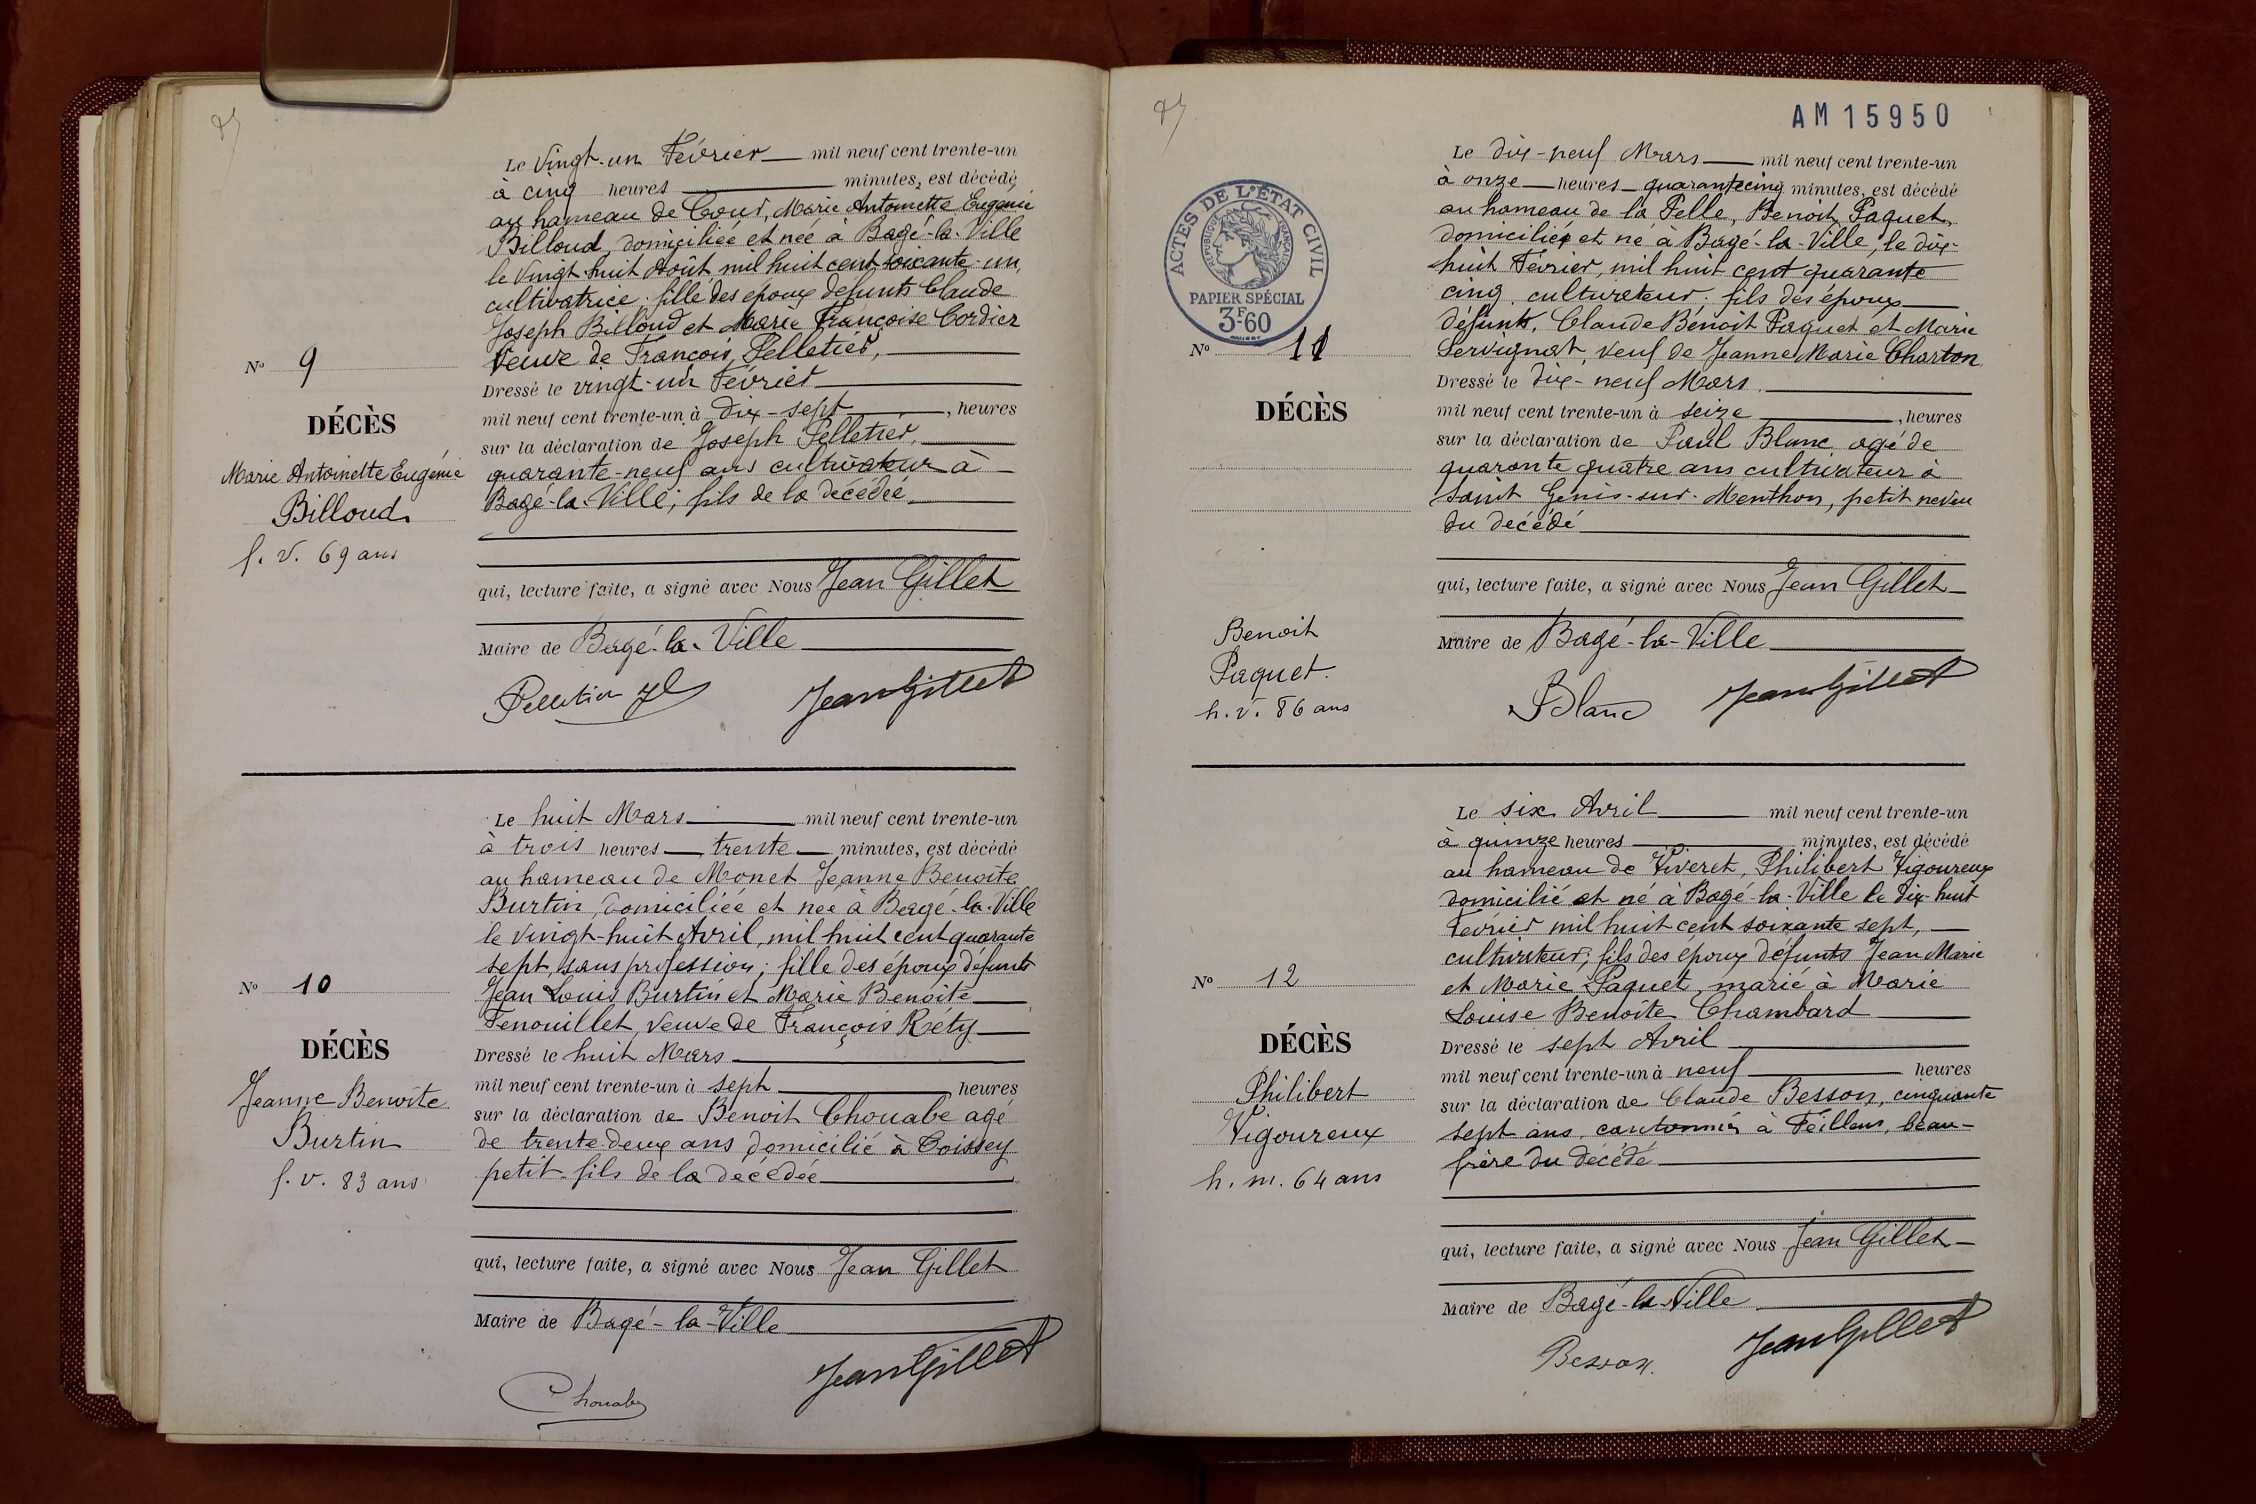 Le Vingt-un Février mil neuf cent trente-un
à cinq heures minutes, est décédé
au hameau de Cour, Marie Antoinette Eugénie
Billoud, domiciliée et née à Bagé-la-Ville
le vingt-huit Août mil huit cent soixante-un,
cultivatrice; fille des époux défunts Claude
Joseph Billoud et Marie Françoise Cordier
Veuve de François Pelletier,
Dressé le vingt-un Février
mil neuf cent trente-un à Dix-sept, heures
sur la déclaration de Joseph Pelletier,
quarante-neuf ans cultivateur à
Bagé-la-Ville; fils de la décédée
qui, lecture faite, a signé avec Nous Jean Gillet
Maire de Bagé-la-Ville
Pelletier Jh JeanGillet
N° 9
DÉCÈS
Marie Antoinette Eugénie
Billoud
f. v. 69 ans
Le huit Mars mil neuf cent trente-un
à trois heures trente minutes, est décédé
au hameau de Monet Jeanne Benoîte
Burtin, domiciliée et née à Bagé-la-Ville
le vingt-huit Avril, mil huit cent quarante
sept, sans profession; fille des époux défunts
Jean Louis Burtin et Marie Benoîte
Fenouillet, veuve de François Réty
Dressé le huit Mars
mil neuf cent trente-un à sept heures
sur la déclaration de Benoit Chouabe agé
de trente-deux ans domicilié à Boissey
petit-fils de la décédée
qui, lecture faite, a signé avec Nous Jean Gillet
Maire de Bagé-la-Ville
Chouabe JeanGillet
N° 10
DÉCÈS
Jeanne Benoîte
Burtin
f. v. 83 ans
AM 15950
ACTES DE L'ÉTAT CIVIL
RÉPUBLIQUE FRANÇAISE
PAPIER SPÉCIAL
3F.60
Le dix-neuf Mars mil neuf cent trente-un
à onze heures quarante cinq minutes, est décédé
au hameau de la Pelle, Benoit Paquet,
domicilié et né à Bagé-la-Ville, le dix-
huit Février, mil huit cent quarante
cinq, cultivateur; fils des époux
défunts, Claude Benoit Paquet et Marie
Servignat, veuf de Jeanne Marie Charton
Dressé le dix-neuf Mars
mil neuf cent trente-un à seize, heures
sur la déclaration de Paul Blanc agé de
quarante quatre ans cultivateur à
Saint Genis-sur-Menthon, petit neveu
du décédé
qui, lecture faite, a signé avec Nous Jean Gillet
Maire de Bagé-la-Ville
Blanc JeanGillet
N° 11
DÉCÈS
Benoit
Paquet.
h. v. 86 ans
Le six Avril mil neuf cent trente-un
à quinze heures minutes, est décédé
au hameau de Viveret, Philibert Vigoureux
domicilié et né à Bagé-la-Ville le dix-huit
Février mil huit cent soixante sept,
cultivateur; fils des époux défunts Jean Marie
et Marie Paquet, marié à Marie
Louise Benoîte Chambard
Dressé le sept Avril
mil neuf cent trente-un à neuf heures
sur la déclaration de Claude Besson, cinquante
sept ans, cantonnier à Feillens, beau-
frère du décédé
qui, lecture faite, a signé avec Nous Jean Gillet
Maire de Bagé-la-Ville
Besson. JeanGillet
N° 12
DÉCÈS
Philibert
Vigoureux
h. m. 64 ans